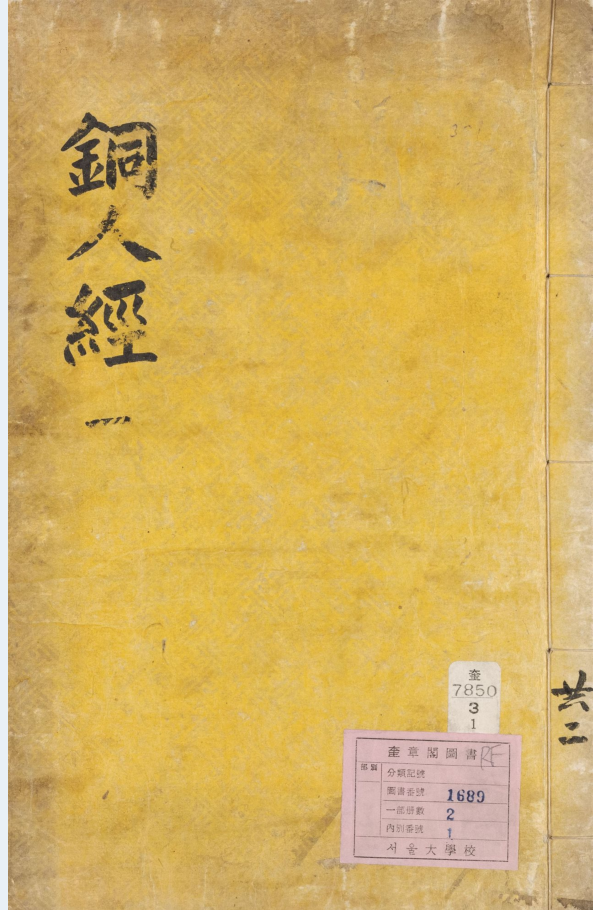 銅人經 一
共二
奎
7850
3
1
奎章閣圖書
分類記號
圖書番號 1689
一部冊數 2
內別番號 1
서울大學校